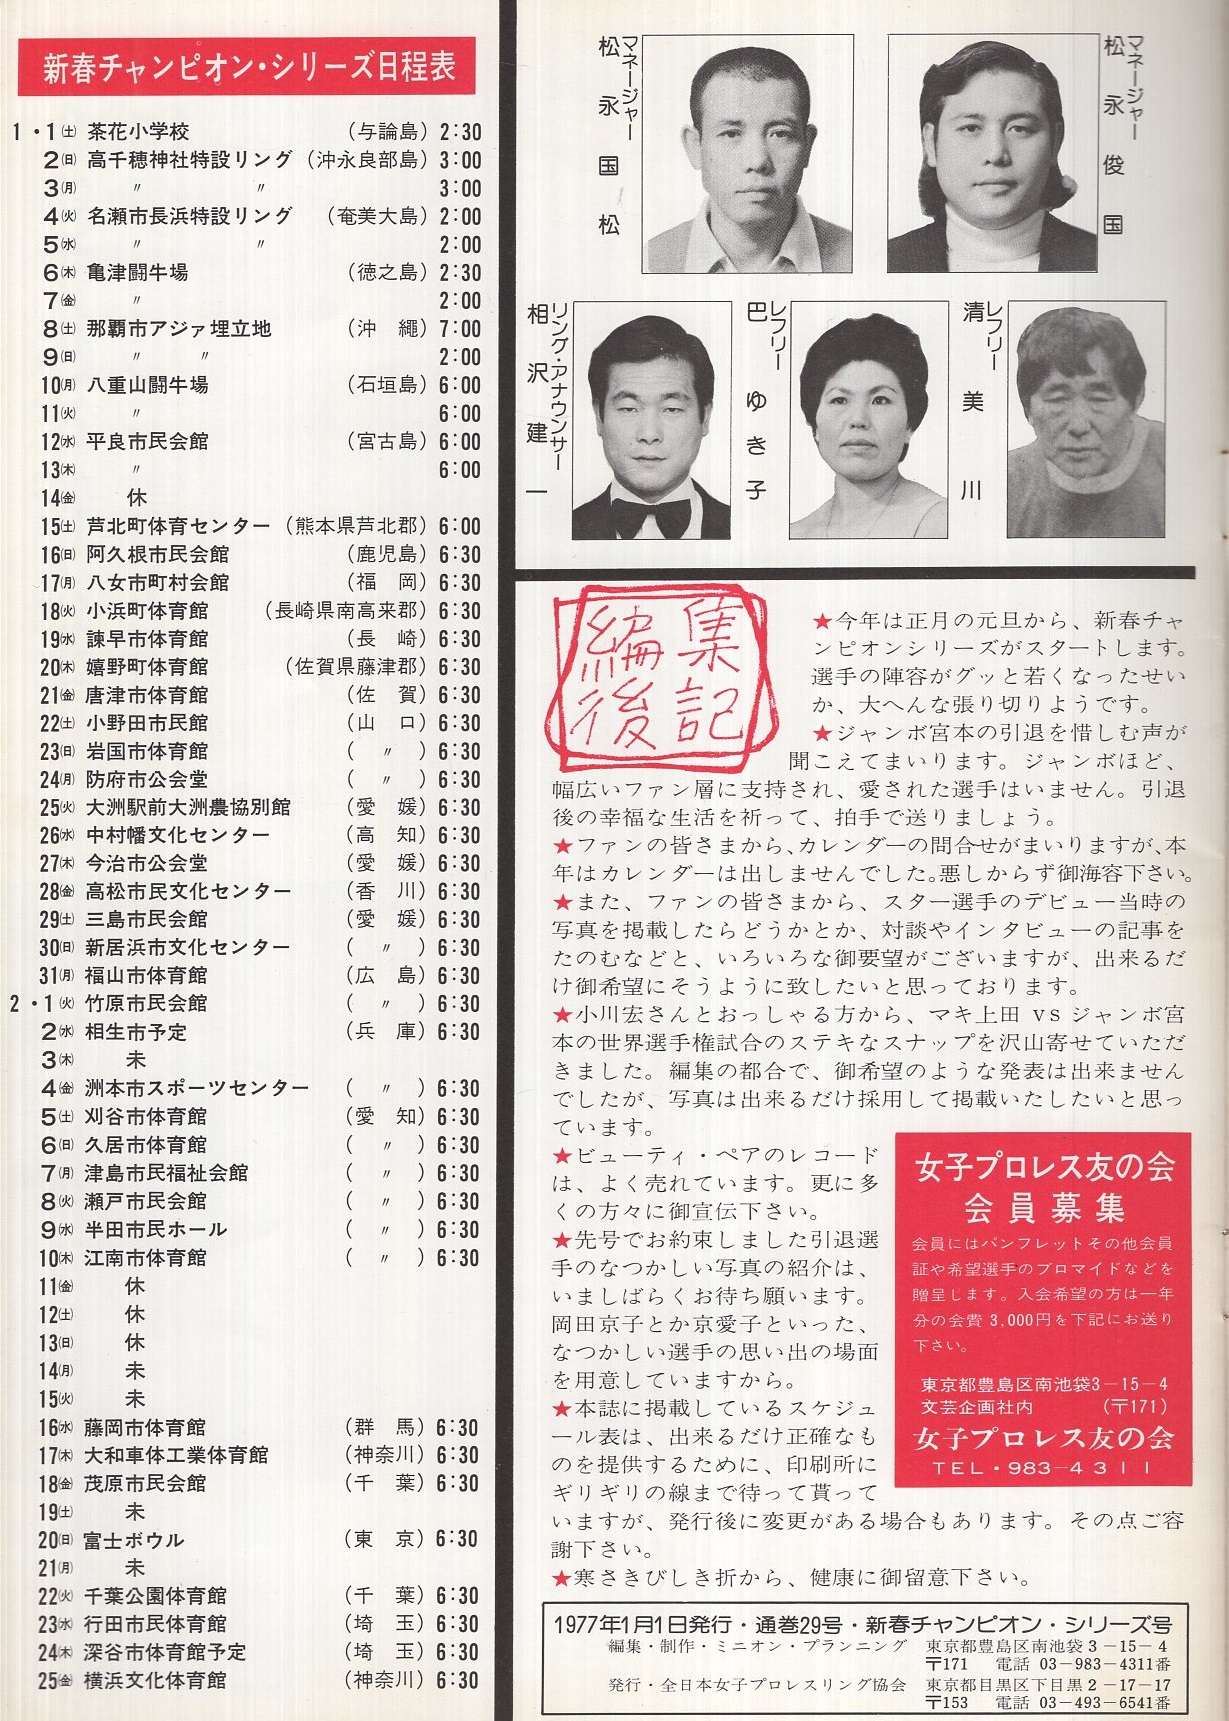 新春チャンピオン・シリーズ日程表
1・1㈯ 茶花小学校 (与論島) 2:30
2㈰ 高千穂神社特設リング (沖永良部島) 3:00
3㈪ 〃 〃 3:00
4㈫ 名瀬市長浜特設リング (奄美大島) 2:00
5㈬ 〃 〃 2:00
6㈭ 亀津闘牛場 (徳之島) 2:30
7㈮ 〃 2:00
8㈯ 那覇市アジァ埋立地 (沖 縄) 7:00
9㈰ 〃 〃 2:00
10㈪ 八重山闘牛場 (石垣島) 6:00
11㈫ 〃 6:00
12㈬ 平良市民会館 (宮古島) 6:00
13㈭ 〃 6:00
14㈮ 休
15㈯ 芦北町体育センター (熊本県芦北郡) 6:00
16㈰ 阿久根市民会館 (鹿児島) 6:30
17㈪ 八女市町村会館 (福 岡) 6:30
18㈫ 小浜町体育館 (長崎県南高来郡) 6:30
19㈬ 諫早市体育館 (長 崎) 6:30
20㈭ 嬉野町体育館 (佐賀県藤津郡) 6:30
21㈮ 唐津市体育館 (佐 賀) 6:30
22㈯ 小野田市民館 (山 口) 6:30
23㈰ 岩国市体育館 ( 〃 ) 6:30
24㈪ 防府市公会堂 ( 〃 ) 6:30
25㈫ 大洲駅前大洲農協別館 (愛 媛) 6:30
26㈬ 中村幡文化センター (高 知) 6:30
27㈭ 今治市公会堂 (愛 媛) 6:30
28㈮ 高松市民文化センター (香 川) 6:30
29㈯ 三島市民会館 (愛 媛) 6:30
30㈰ 新居浜市文化センター ( 〃 ) 6:30
31㈪ 福山市体育館 (広 島) 6:30
2・1㈫ 竹原市民会館 ( 〃 ) 6:30
2㈬ 相生市予定 (兵 庫) 6:30
3㈭ 未
4㈮ 洲本市スポーツセンター ( 〃 ) 6:30
5㈯ 刈谷市体育館 (愛 知) 6:30
6㈰ 久居市体育館 ( 〃 ) 6:30
7㈪ 津島市民福祉会館 ( 〃 ) 6:30
8㈫ 瀬戸市民会館 ( 〃 ) 6:30
9㈬ 半田市民ホール ( 〃 ) 6:30
10㈭ 江南市体育館 ( 〃 ) 6:30
11㈮ 休
12㈯ 休
13㈰ 休
14㈪ 未
15㈫ 未
16㈬ 藤岡市体育館 (群 馬) 6:30
17㈭ 大和車体工業体育館 (神奈川) 6:30
18㈮ 茂原市民会館 (千 葉) 6:30
19㈯ 未
20㈰ 富士ボウル (東 京) 6:30
21㈪ 未
22㈫ 千葉公園体育館 (千 葉) 6:30
23㈬ 行田市民体育館 (埼 玉) 6:30
24㈭ 深谷市体育館予定 (埼 玉) 6:30
25㈮ 横浜文化体育館 (神奈川) 6:30
マネージャー
松永国松
マネージャー
松永俊国
リング・アナウンサー
相沢建一
レフリー
巴ゆき子
レフリー
清美川
編集
後記
★今年は正月の元旦から、新春チャ
ンピオンシリーズがスタートします。
選手の陣容がグッと若くなったせい
か、大へんな張り切りようです。
★ジャンボ宮本の引退を惜しむ声が
聞こえてまいります。ジャンボほど、
幅広いファン層に支持され、愛された選手はいません。引退
後の幸福な生活を祈って、拍手で送りましょう。
★ファンの皆さまから、カレンダーの問合せがまいりますが、本
年はカレンダーは出しませんでした。悪しからず御海容下さい。
★また、ファンの皆さまから、スター選手のデビュー当時の
写真を掲載したらどうかとか、対談やインタビューの記事を
たのむなどと、いろいろな御要望がございますが、出来るだ
け御希望にそうように致したいと思っております。
★小川宏さんとおっしゃる方から、マキ上田 vs ジャンボ宮
本の世界選手権試合のステキなスナップを沢山寄せていただ
きました。編集の都合で、御希望のような発表は出来ません
でしたが、写真は出来るだけ採用して掲載いたしたいと思っ
ています。
★ビューティ・ペアのレコード
は、よく売れています。更に多
くの方々に御宣伝下さい。
★先号でお約束しました引退選
手のなつかしい写真の紹介は、
いましばらくお待ち願います。
岡田京子とか京愛子といった、
なつかしい選手の思い出の場面
を用意していますから。
★本誌に掲載しているスケジュ
ール表は、出来るだけ正確なも
のを提供するために、印刷所に
ギリギリの線まで待って貰って
いますが、発行後に変更がある場合もあります。その点ご容
謝下さい。
★寒さきびしき折から、健康に御留意下さい。
女子プロレス友の会
会員募集
会員にはパンフレットその他会員
証や希望選手のブロマイドなどを
贈呈します。入会希望の方は一年
分の会費 3,000円を下記にお送り
下さい。
東京都豊島区南池袋3−15−4
文芸企画社内 (〒171)
女子プロレス友の会
TEL・983−4311
1977年1月1日発行・通巻29号・新春チャンピオン・シリーズ号
編集・制作・ミニオン・プランニング 東京都豊島区南池袋3−15−4
〒171 電話 03−983−4311番
発行・全日本女子プロレスリング協会 東京都目黒区下目黒2−17−17
〒153 電話 03−493−6541番